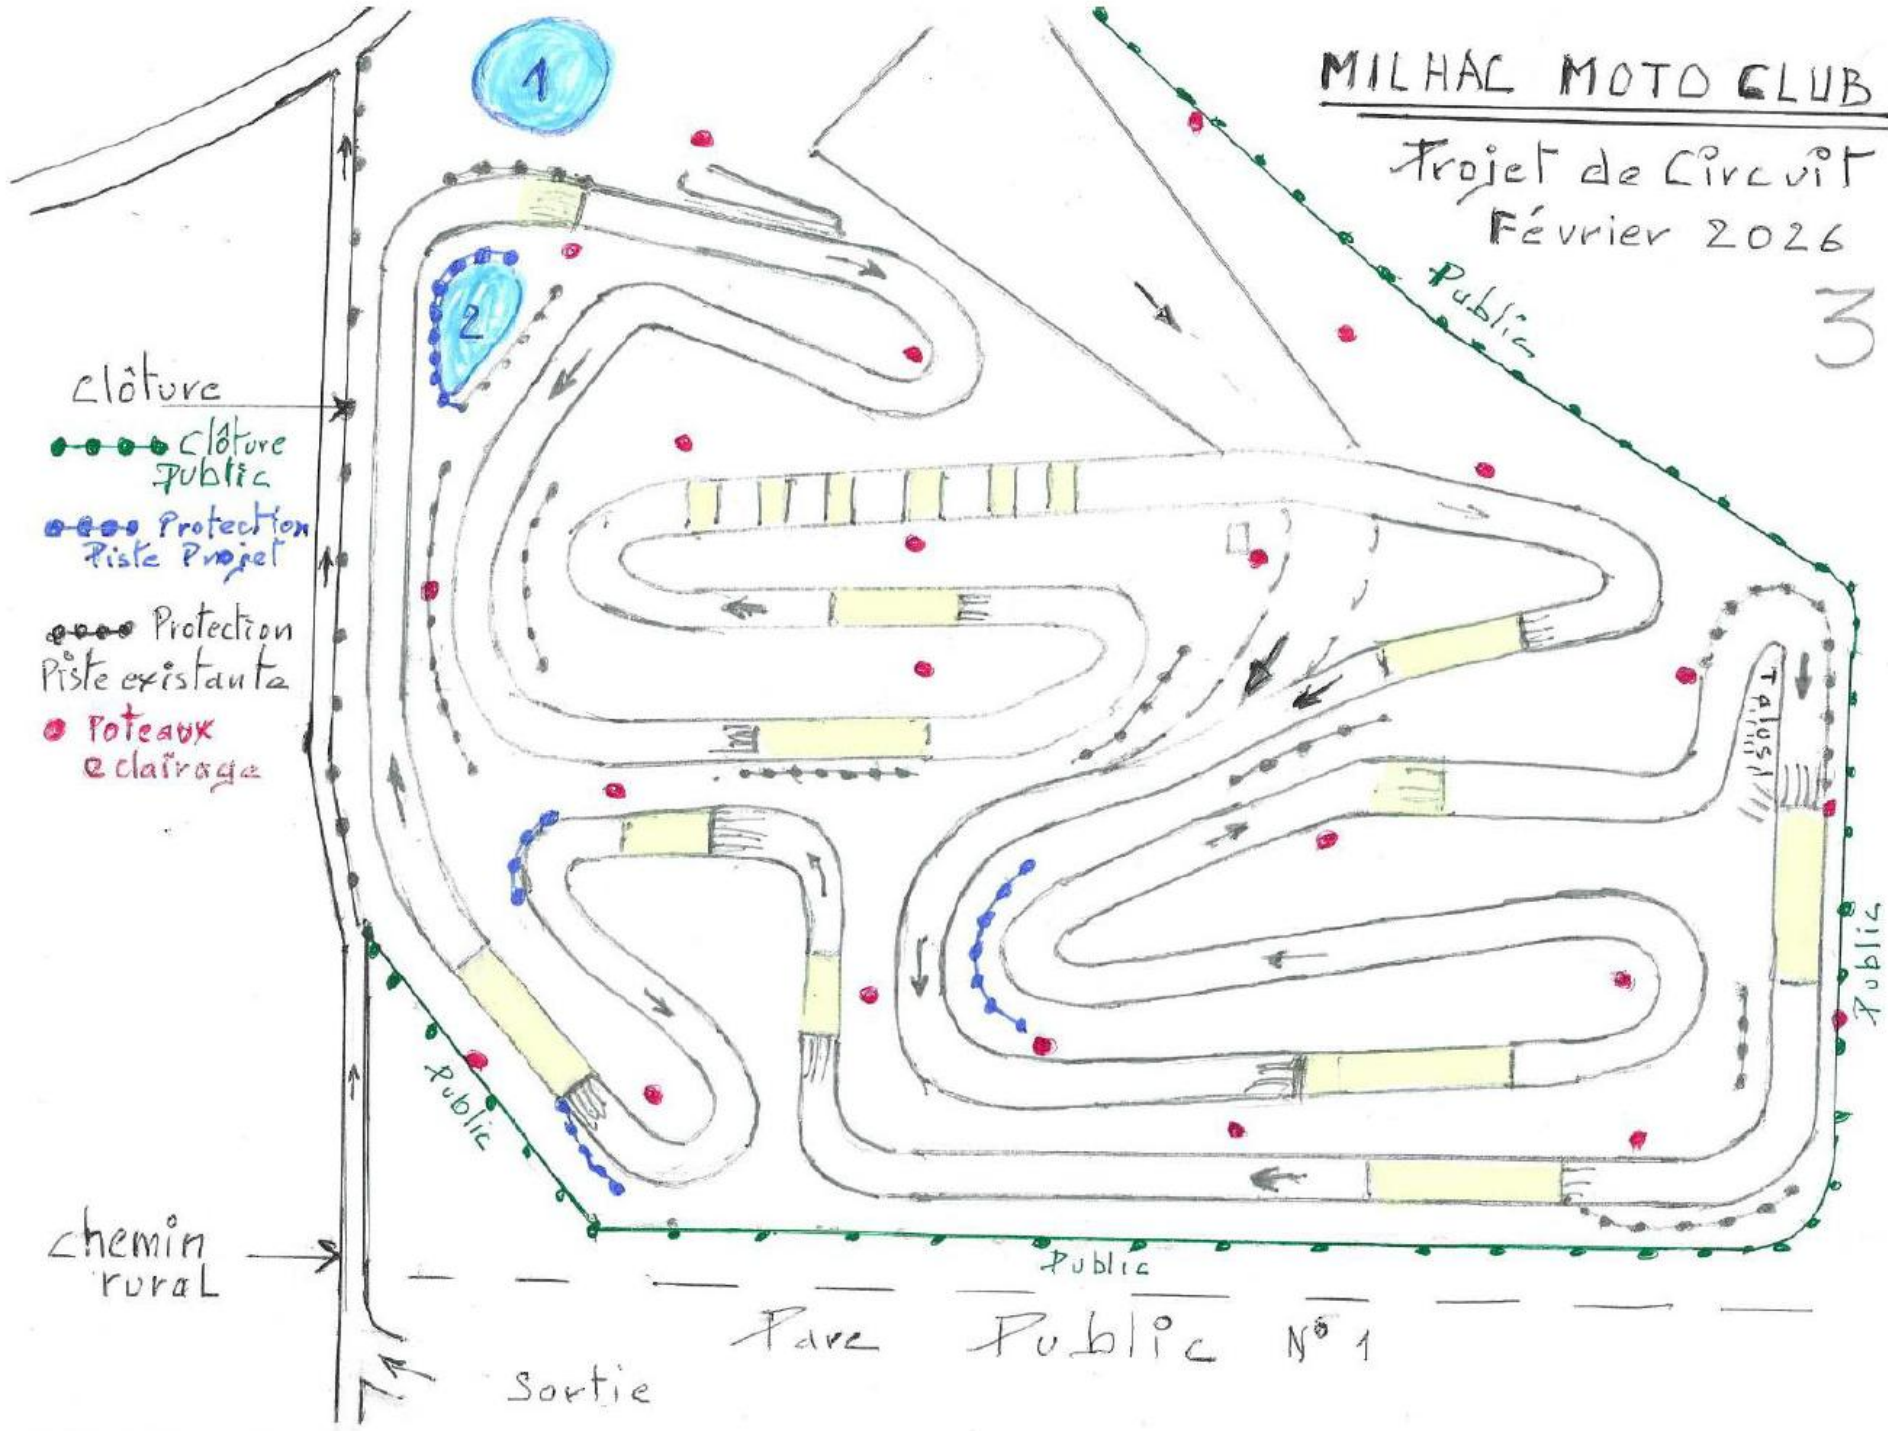 MILHAC MOTO CLUB
Projet de Circuit
Février 2026
3
1
2
Public
clôture
Clôture
Public
Protection
Piste Projet
Protection
Piste existante
Poteaux
eclairage
Talus
Public
Public
Public
chemin
rural
Parc Public N° 1
Sortie